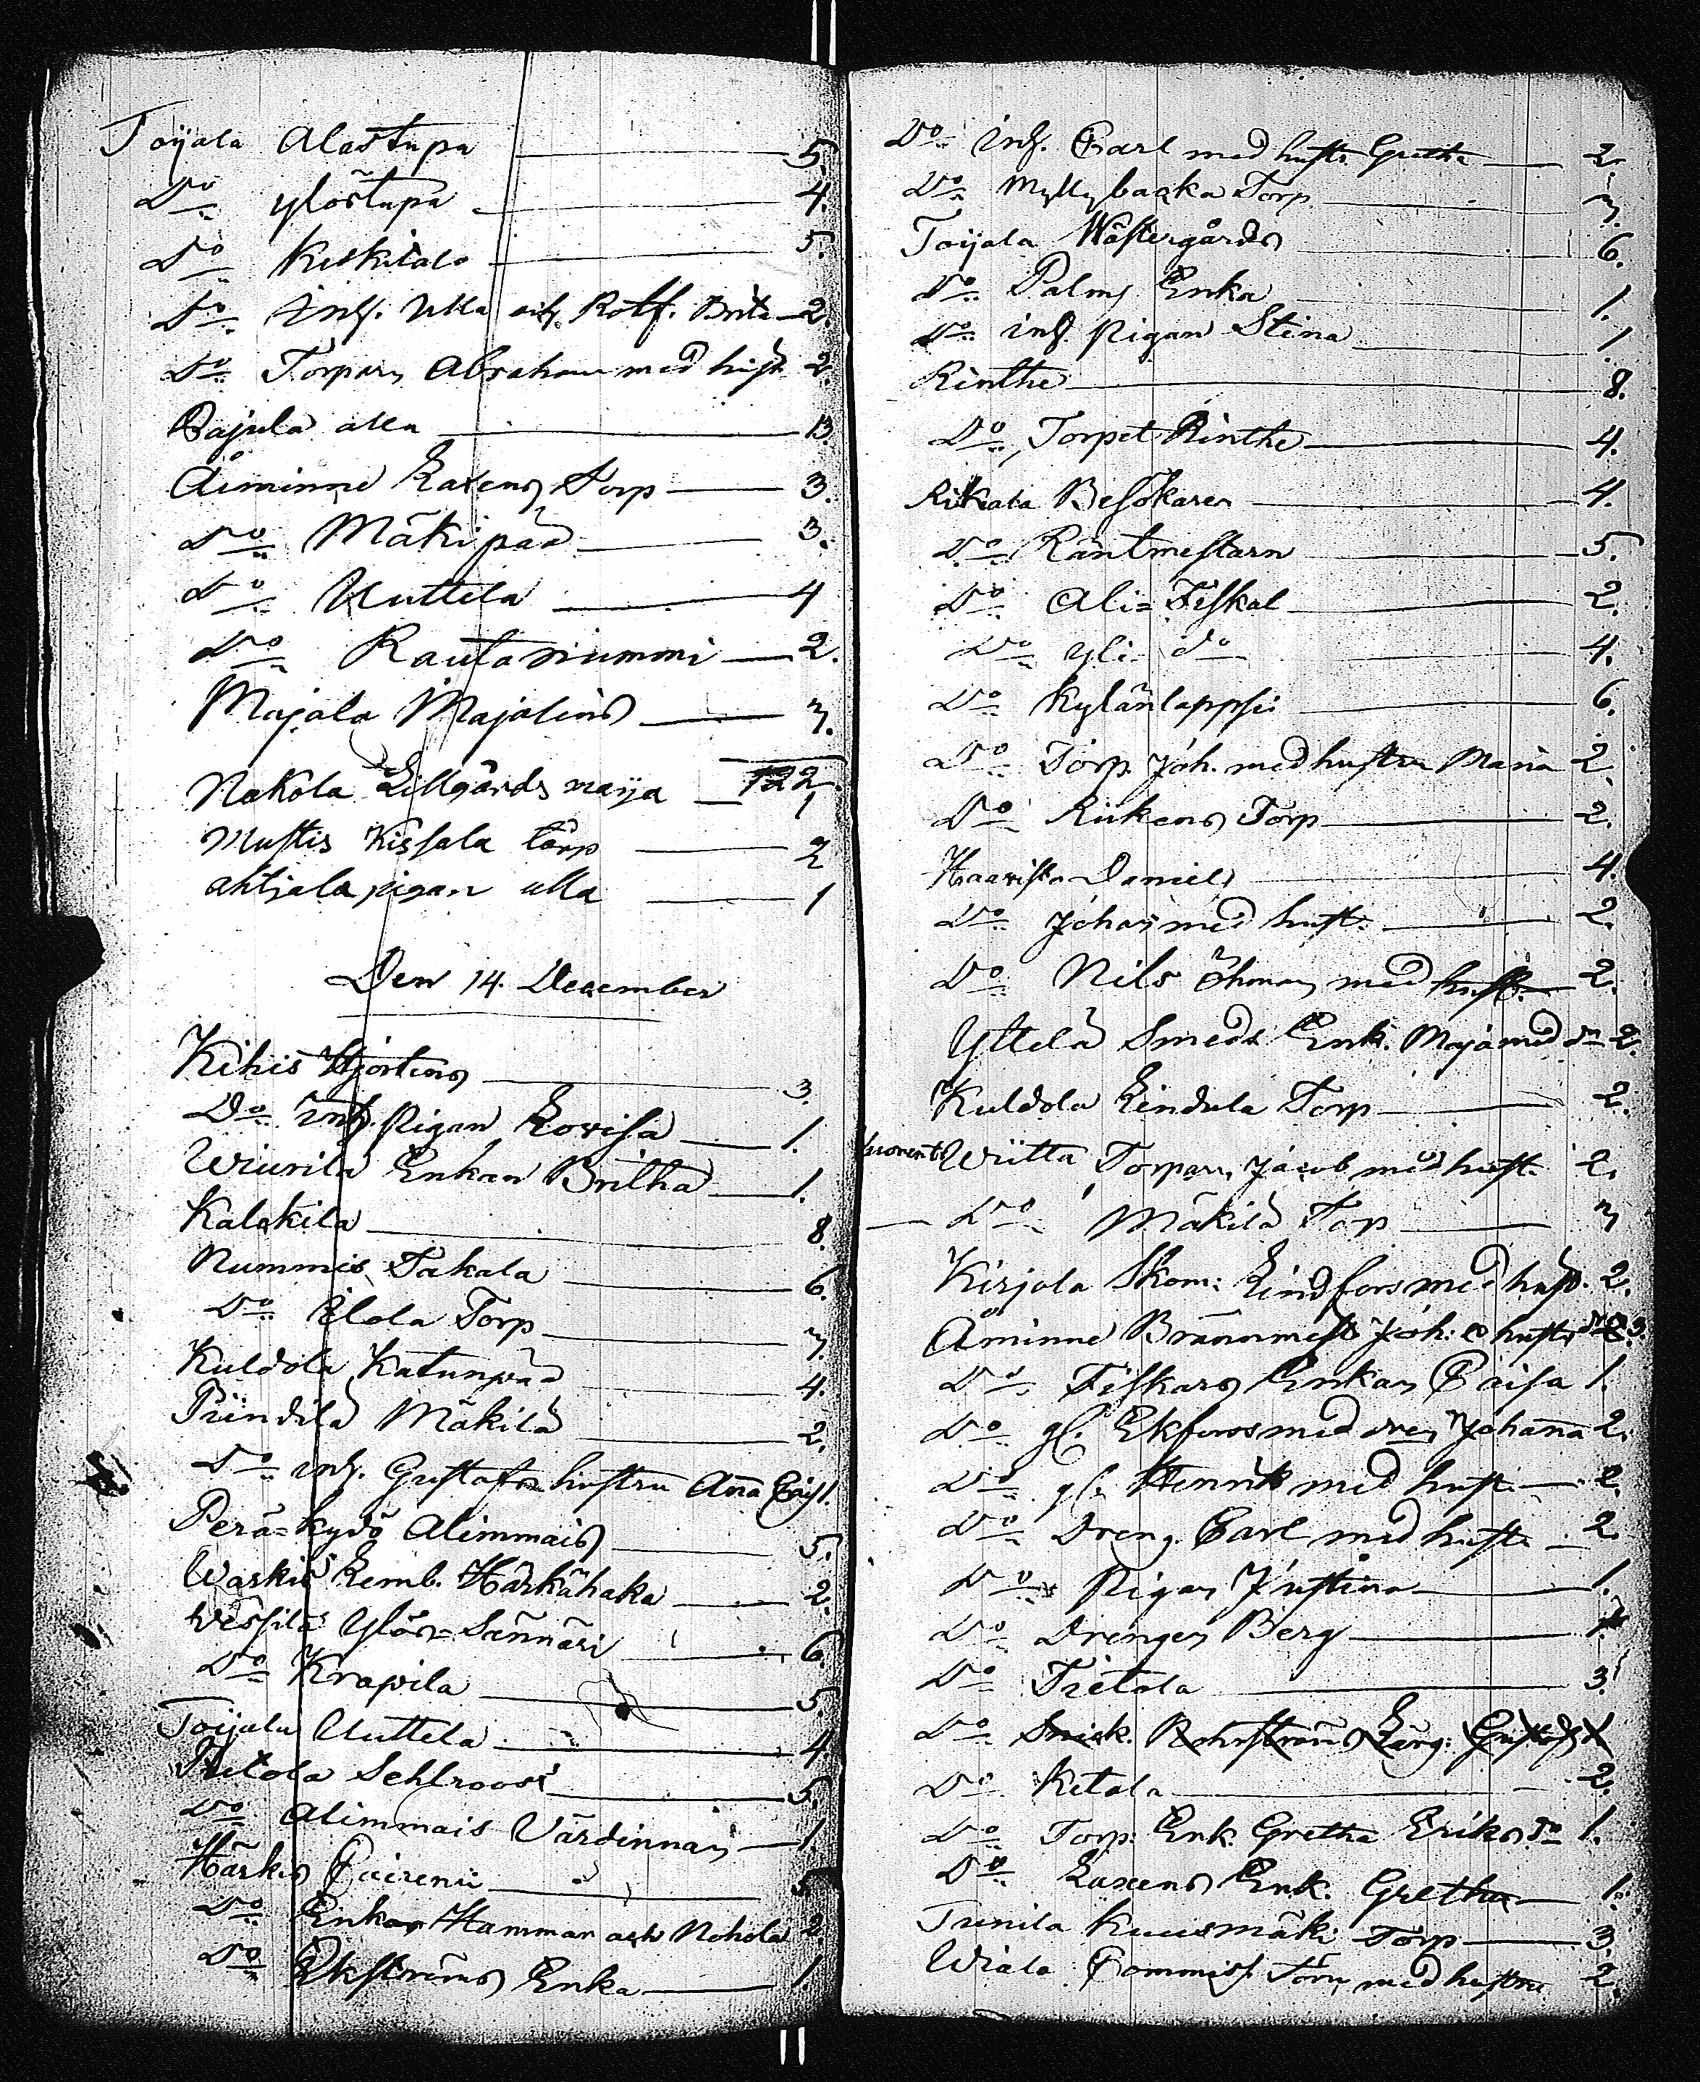 Toijala Alastupa 5.
Do Ylöstupa 4.
Do Keskitalo 5.
Do Inh. Ulla och Rotf. Brita 2.
Do Torparn Abraham med hust. 2.
Pajula Ulla 13.
Åminne Laxens Torp 3.
Do Mäkipää 3.
Do Uuttela 4
Do Rautaniummi 2.
Majala Majalins 3.
122.
Nokola Lillgårds Maija 1
Mustis Kissala torp 2
Ahtiala pigan Ulla 1
Den 14. December
Kihis Hjortens 3.
Do inh. Pigan Lovisa 1.
Wiurila Enkan Britha 1.
Kalakila 8.
Nummis Takala 6.
Do Elola Torp 3.
Kuldola Katunpää 4.
Pündilä Mäkilä 2.
Do inh. Gustafs hustru Anna 1.
Perä=Kydö Alimmais 5.
Waskis Lemb. Härkähaka 2.
Wessilä Ylös=Sännäri 6.
Do Krapila 5.
Toijala Uuttela 4
Sehlroos 5.
Do Alimmais Värdinnan 1.
Härkis 5
Do Enkan Hamman och Nohola 2
Do Ekströms Enka 1.
Do inh. Carl med hustr. Gretha 2.
Do Myllybacka Torp 3.
Toijala Wästergårds 6.
Do Palms Enka 1.
Do inh. Pigan Stina 1
Rinthe 8.
Do Torpet Rinthe 4.
Rikala Besökaren 4.
Do Räntmestarn 5.
Do Ali=Fiskal 2.
Do Yli do 4.
Do Kylänlappsi 6.
Do Torp. Joh. med hustru Maria 2.
Do Rukens Torp 2.
Haavisto Daniels 4.
Do Johan med hust. 2.
Do Nils Öhman med hust. 2.
Yttelä Smeds Enk. Maja med dr 2.
Kuldola Lindula Torp 2.
Wiitta Torparn Jacob med hust. 2.
Do Mäkilä Torp 3
Kirjola Skom: Lindfors med hust. 2.
Åminne Brännmest. Joh: o hustr. 3.
Do Fiskars Enkan Caisa 1.
Do gl. Ekfors med dren Johanna 2.
Do gl. Henrik med hust. 2.
Do Dreng. Carl med hustr. 2.
Do Pigan Justina 1.
Do Drengen Berg 1.
Do Tietala 3.
Do Snick. Lärg: Gustaf 1
Do Ketola 2.
Do Torp. Enk. Gretha Eriks dr 1.
Do Laxens Enk. Gretha 1.
Trenila Kuusmäki Torp 3.
Wiala Commiss. Törn med hustru 2.